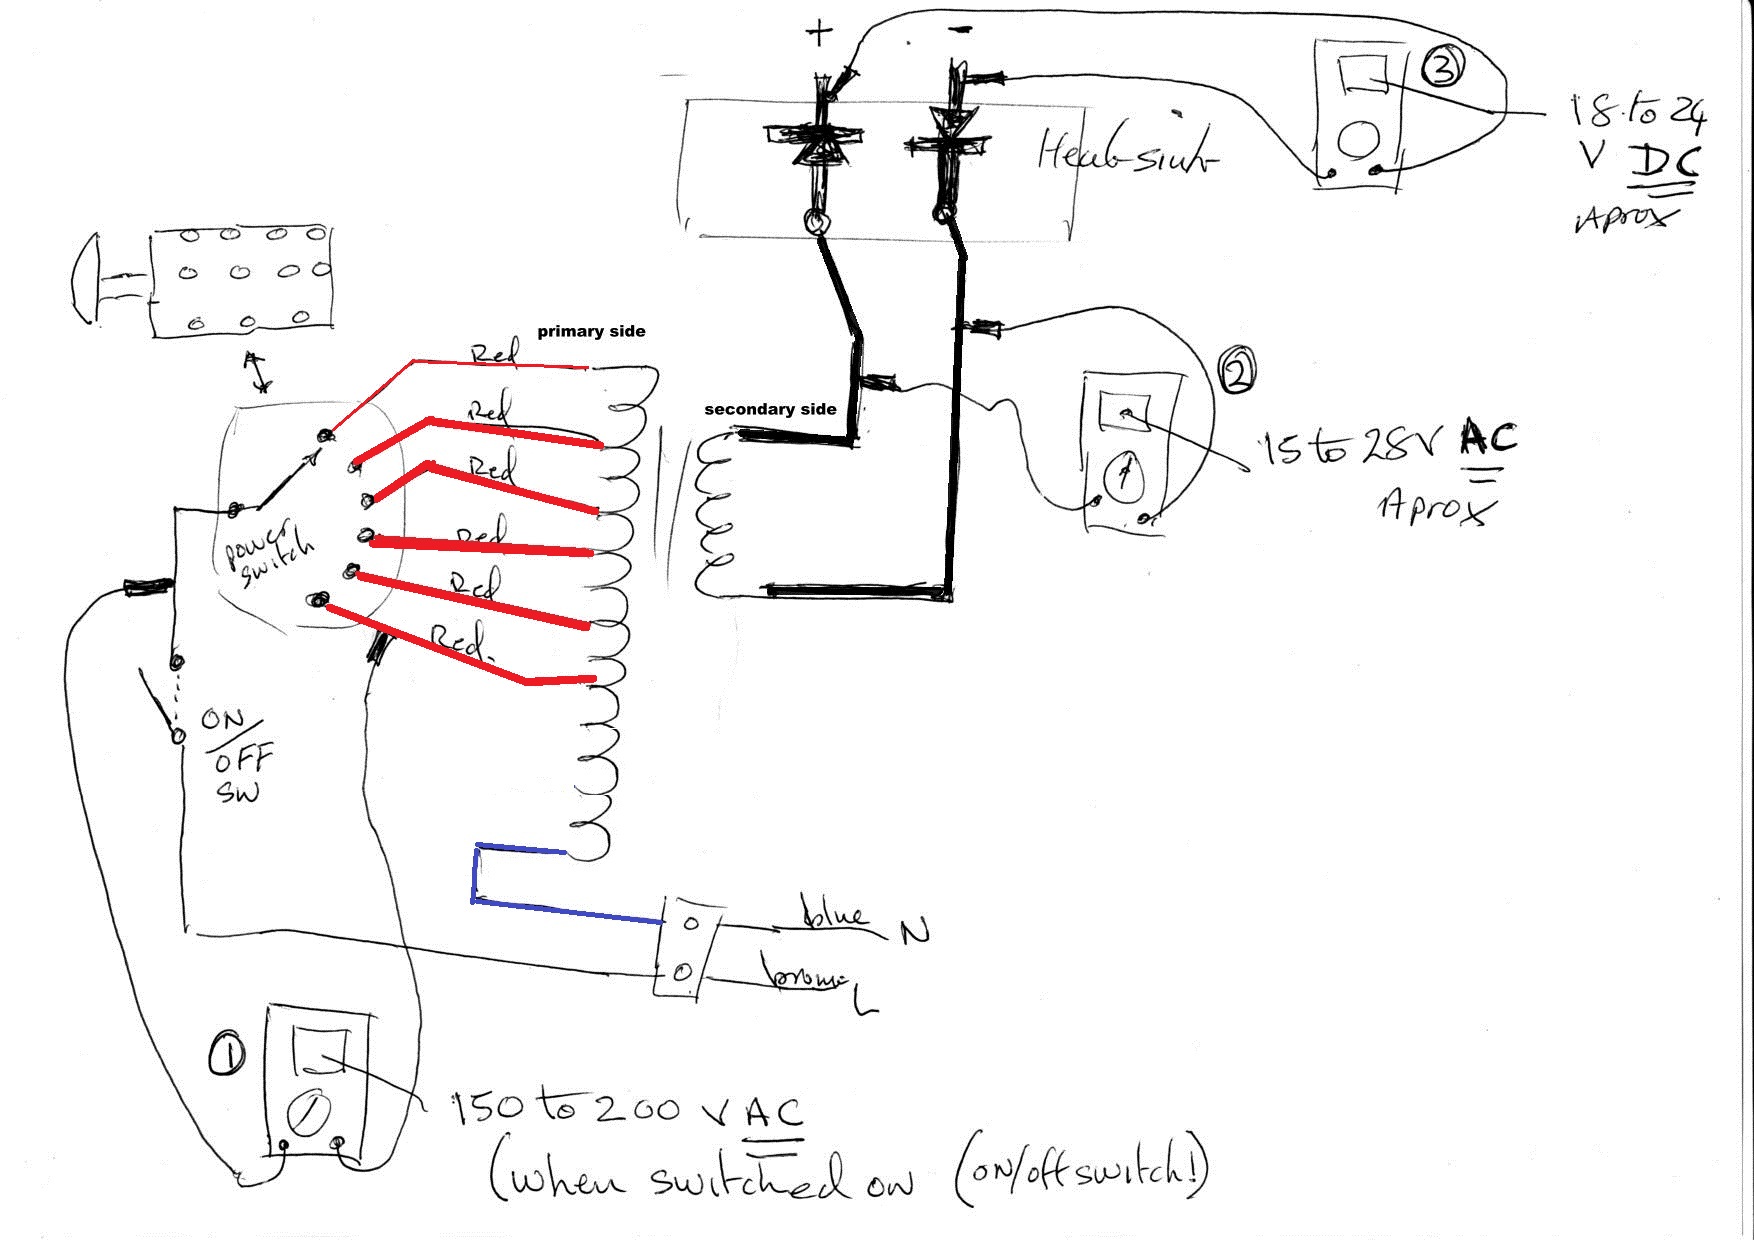 + -
③
18 to 24
V DC
Aprox
Heat-sink
primary side
Red
secondary side
Red
Red
Red
Red
Red.
power
switch
②
15 to 28V AC
Aprox
ON/
OFF
SW
blue N
brown L
①
150 to 200 V AC
(when switched on (on/off switch!)